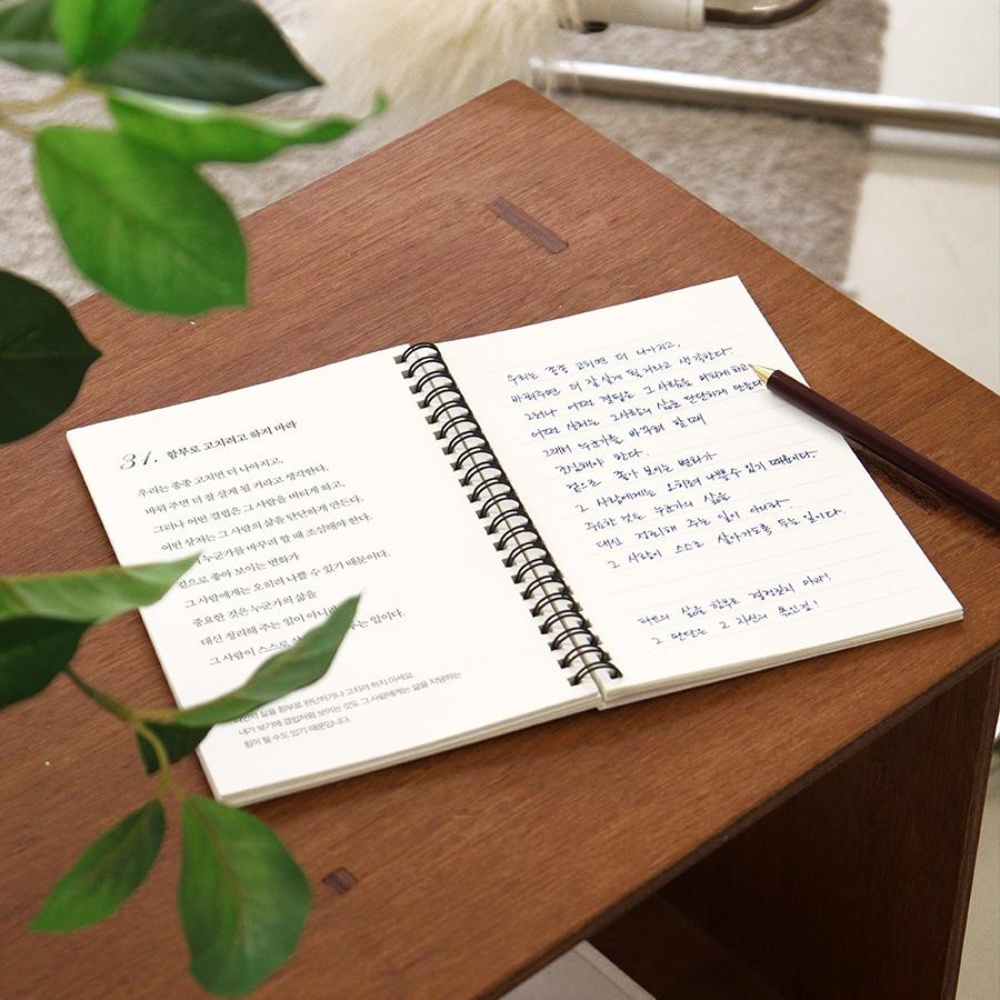 31. 함부로 고치려고 하지 마라
우리는 종종 고치면 더 나아지고,
바꿔 주면 더 잘 살게 될 거라고 생각한다.
그러나 어떤 결점은 그 사람을 버티게 하고,
어떤 상처는 그 사람의 삶을 단단하게 만든다.
누군가를 바꾸려 할 때 조심해야 한다.
겉으로 좋아 보이는 변화가
그 사람에게는 오히려 나쁠 수 있기 때문이다.
중요한 것은 누군가의 삶을
대신 정리해 주는 일이 아니라
그 사람이 스스로 두는 일이다.
타인의 삶을 함부로 판단하거나 고치려 하지 마세요.
내가 보기에 결점처럼 보이는 것도 그 사람에게는 삶을 지탱하는
힘이 될 수도 있기 때문입니다.
우리는 종종 고치면 더 나아지고,
바꿔주면 더 잘 살게 될 거라고 생각한다.
그러나 어떤 결점은 그 사람을 버티게 하고
어떤 상처는 그사람의 삶을 단단하게 만든다
그래서 누군가를 바꾸려 할 때
조심해야 한다.
겉으로 좋아 보이는 변화가
그 사람에게는 오히려 나쁠 수 있기 때문이다.
중요한 것은 누군가의 삶을
대신 정리해 주는 일이 아니라
그 사람이 스스로 살아가도록 두는 일이다.
타인의 삶을 함부로 결정짓지 마라!
그 판단은 그 자신의 몫인걸!